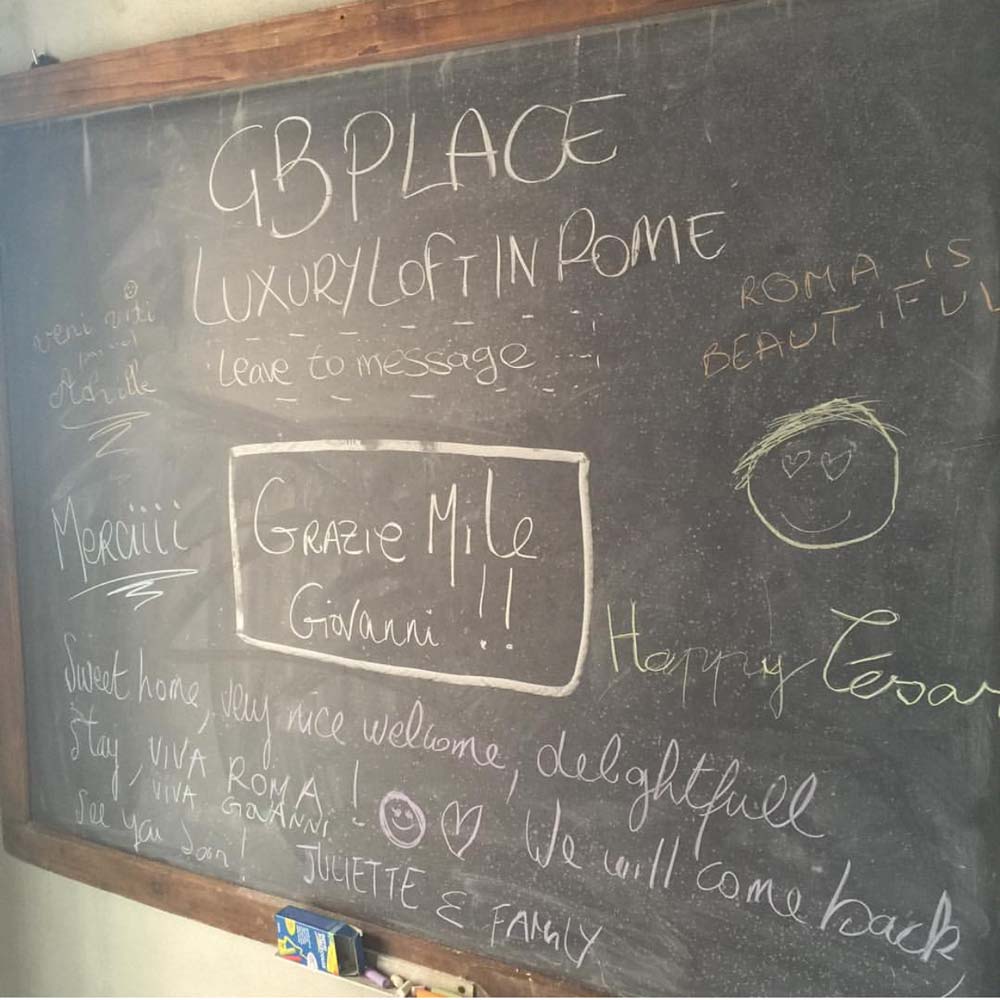 GB PLACE
LUXURY LOFT IN ROME
Leave to message
ROMA IS
BEAUTIFUL
veni vidi
Merciiii
GRAZIE Mile
Giovanni !!
Happy César
Sweet home, very nice welcome, delightfull
Stay, VIVA ROMA !
VIVA GIOVANNI -
We will come back
See you Soon !
JULIETTE & FAMILY